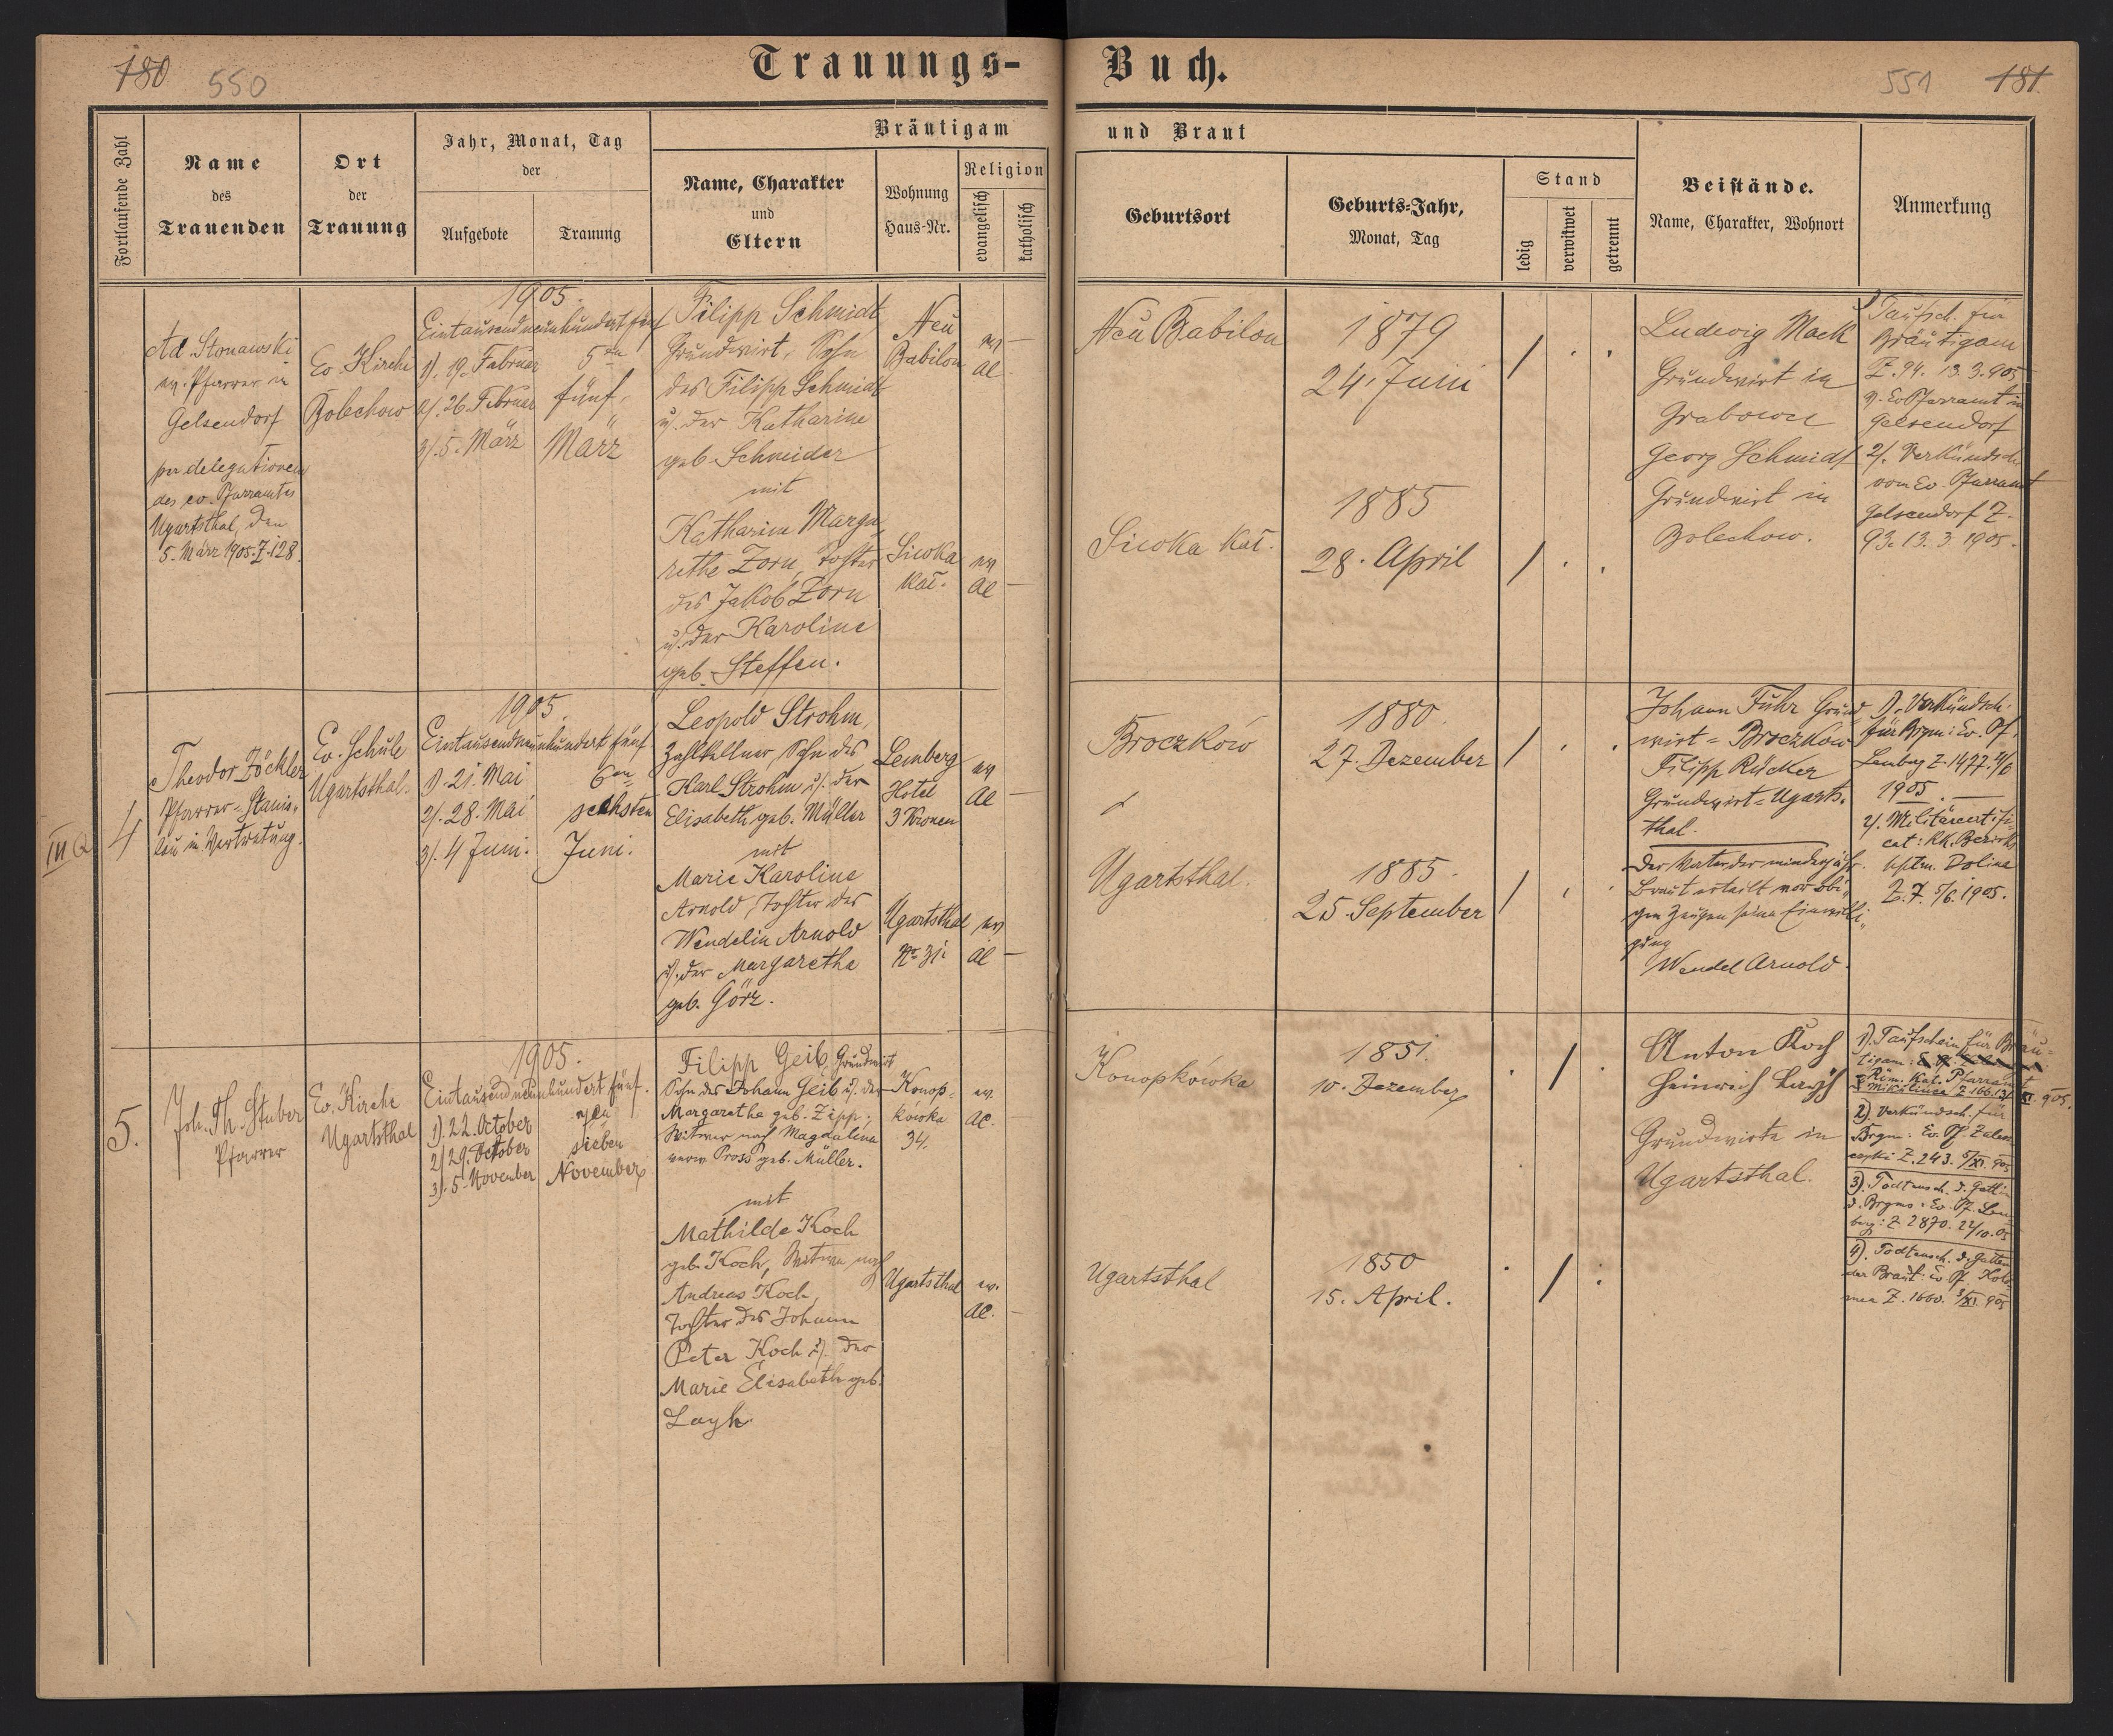 180 550
Trauungs-
Buch.
551 181.
Fortlaufende Zahl
Name
des
Trauenden
Ort
der
Trauung
Jahr, Monat, Tag
der
Aufgebote
Trauung
Bräutigam
Name, Charakter
und
Eltern
Wohnung
Haus-Nr.
Religion
evangelisch
katholisch
und Braut
Geburtsort
Geburts-Jahr,
Monat, Tag
Stand
ledig
verwitwet
getrennt
Beistände.
Name, Charakter, Wohnort
Anmerkung
Ad. Stonawski
ev. Pfarrer in
Gelsendorf
per delegationem
des ev. Pfarramtes
Ugartsthal, den
5. März 1905. Z. 128.
Ev. Kirche
Bolechow
1905.
Eintausendneunhundert fünf
1). 19. Februar
2). 26. Februar
3). 5. März
5ten
fünf
März
Filipp Schmidt
Grundwirt, Sohn
des Filipp Schmidt
u. der Katharine
geb. Schneider
mit
Katharina Marga-
rethe Zorn, Tochter
des Jakob Zorn
u. der Karoline
geb. Steffen.
Neu
Babilon
ev
AC
Siwoka
Kal.
ev
AC
Neu Babilon
1879
24. Juni
Siwoka Kal.
1885
28. April
Ludwig Mack
Grundwirt in
Grabowa
Georg Schmidt
Grundwirt in
Bolechow.
Taufsch. für
Bräutigam
Z. 94. 13.3.905
v. Ev Pfarramt in
Gelsendorf
2). Verkündsch.
vom Ev. Pfarramt
Gelsendorf Z.
93. 13. 3. 1905.
III Q
4
Theodor Zöckler
Pfarrer-Stanis-
lau in Vertretung.
Ev. Schule
Ugartsthal.
1905.
Eintausendneunhundert fünf
1). 21. Mai
2). 28. Mai
3). 4 Juni.
6ten
sechsten
Juni.
Leopold Strohm,
Zahlkellner, Sohn des
Karl Strohm u. der
Elisabeth geb. Müller
mit
Marie Karoline
Arnold, Tochter des
Wendelin Arnold
u. der Margaretha
geb. Görz.
Lemberg
Hotel
3 Kronen
ev
AC
Ugartsthal
No 31
ev
AC
Broczków
1880.
27. Dezember
Ugartsthal.
1885.
25. September
Johann Fuhr Grund-
wirt = Broczków
Filipp Rücker
Grundwirt = Ugarts-
thal.
Der Vater der minderjähr.
Braut erteilt vor obi-
gen Zeugen seine Einwilli-
gung
Wendel Arnold.
1). Verkündsch.
für Brgm: Ev. Pf.
Lemberg Z. 1477. 4/6
1905.
2). Militärcertifi-
cat: kk. Bezirks
hptm. Dolina
Z. 7. 5/6. 1905.
5.
Joh. Th. Stuber
Pfarrer
Ev. Kirche
Ugartsthal
1905.
Eintausendneunhundert fünf.
1). 22. October
2) 29. October
3). 5. November
7ten
sieben
November
Filipp Geib, Grundwirt
Sohn des Johann Geib u. der
Margaretha geb. Zipp;
Witwer nach Magdalena
verw. Pross geb. Müller.
mit
Mathilde Koch
geb. Koch, Witwe nach
Andreas Koch,
Tochter des Johann
Peter Koch u. der
Marie Elisabeth geb.
Layh.
Konop-
kówka
34.
ev.
AC.
Ugartsthal
ev.
AC.
Konopkówka
1851.
10. Dezember
Ugartsthal
1850
15. April.
Anton Koch
Heinrich Layh
Grundwirte in
Ugartsthal.
1). Taufschein für Bräu-
tigam:
Röm. Kat. Pfarramt
Mikulince Z. 166. 13/XI. 905.
2). Verkündsch. für
Brgm: Ev. Pf Zales-
czyki Z. 243. 5/XI. 905
3). Todtensch. d. Gattin
d. Brgms: Ev. Pf. Lem-
berg: Z. 2870. 24/10. 05
4). Todtensch. d. Gatten
der Braut: Ev. Pf. Kolo-
mea Z. 1660. 3/XI. 905